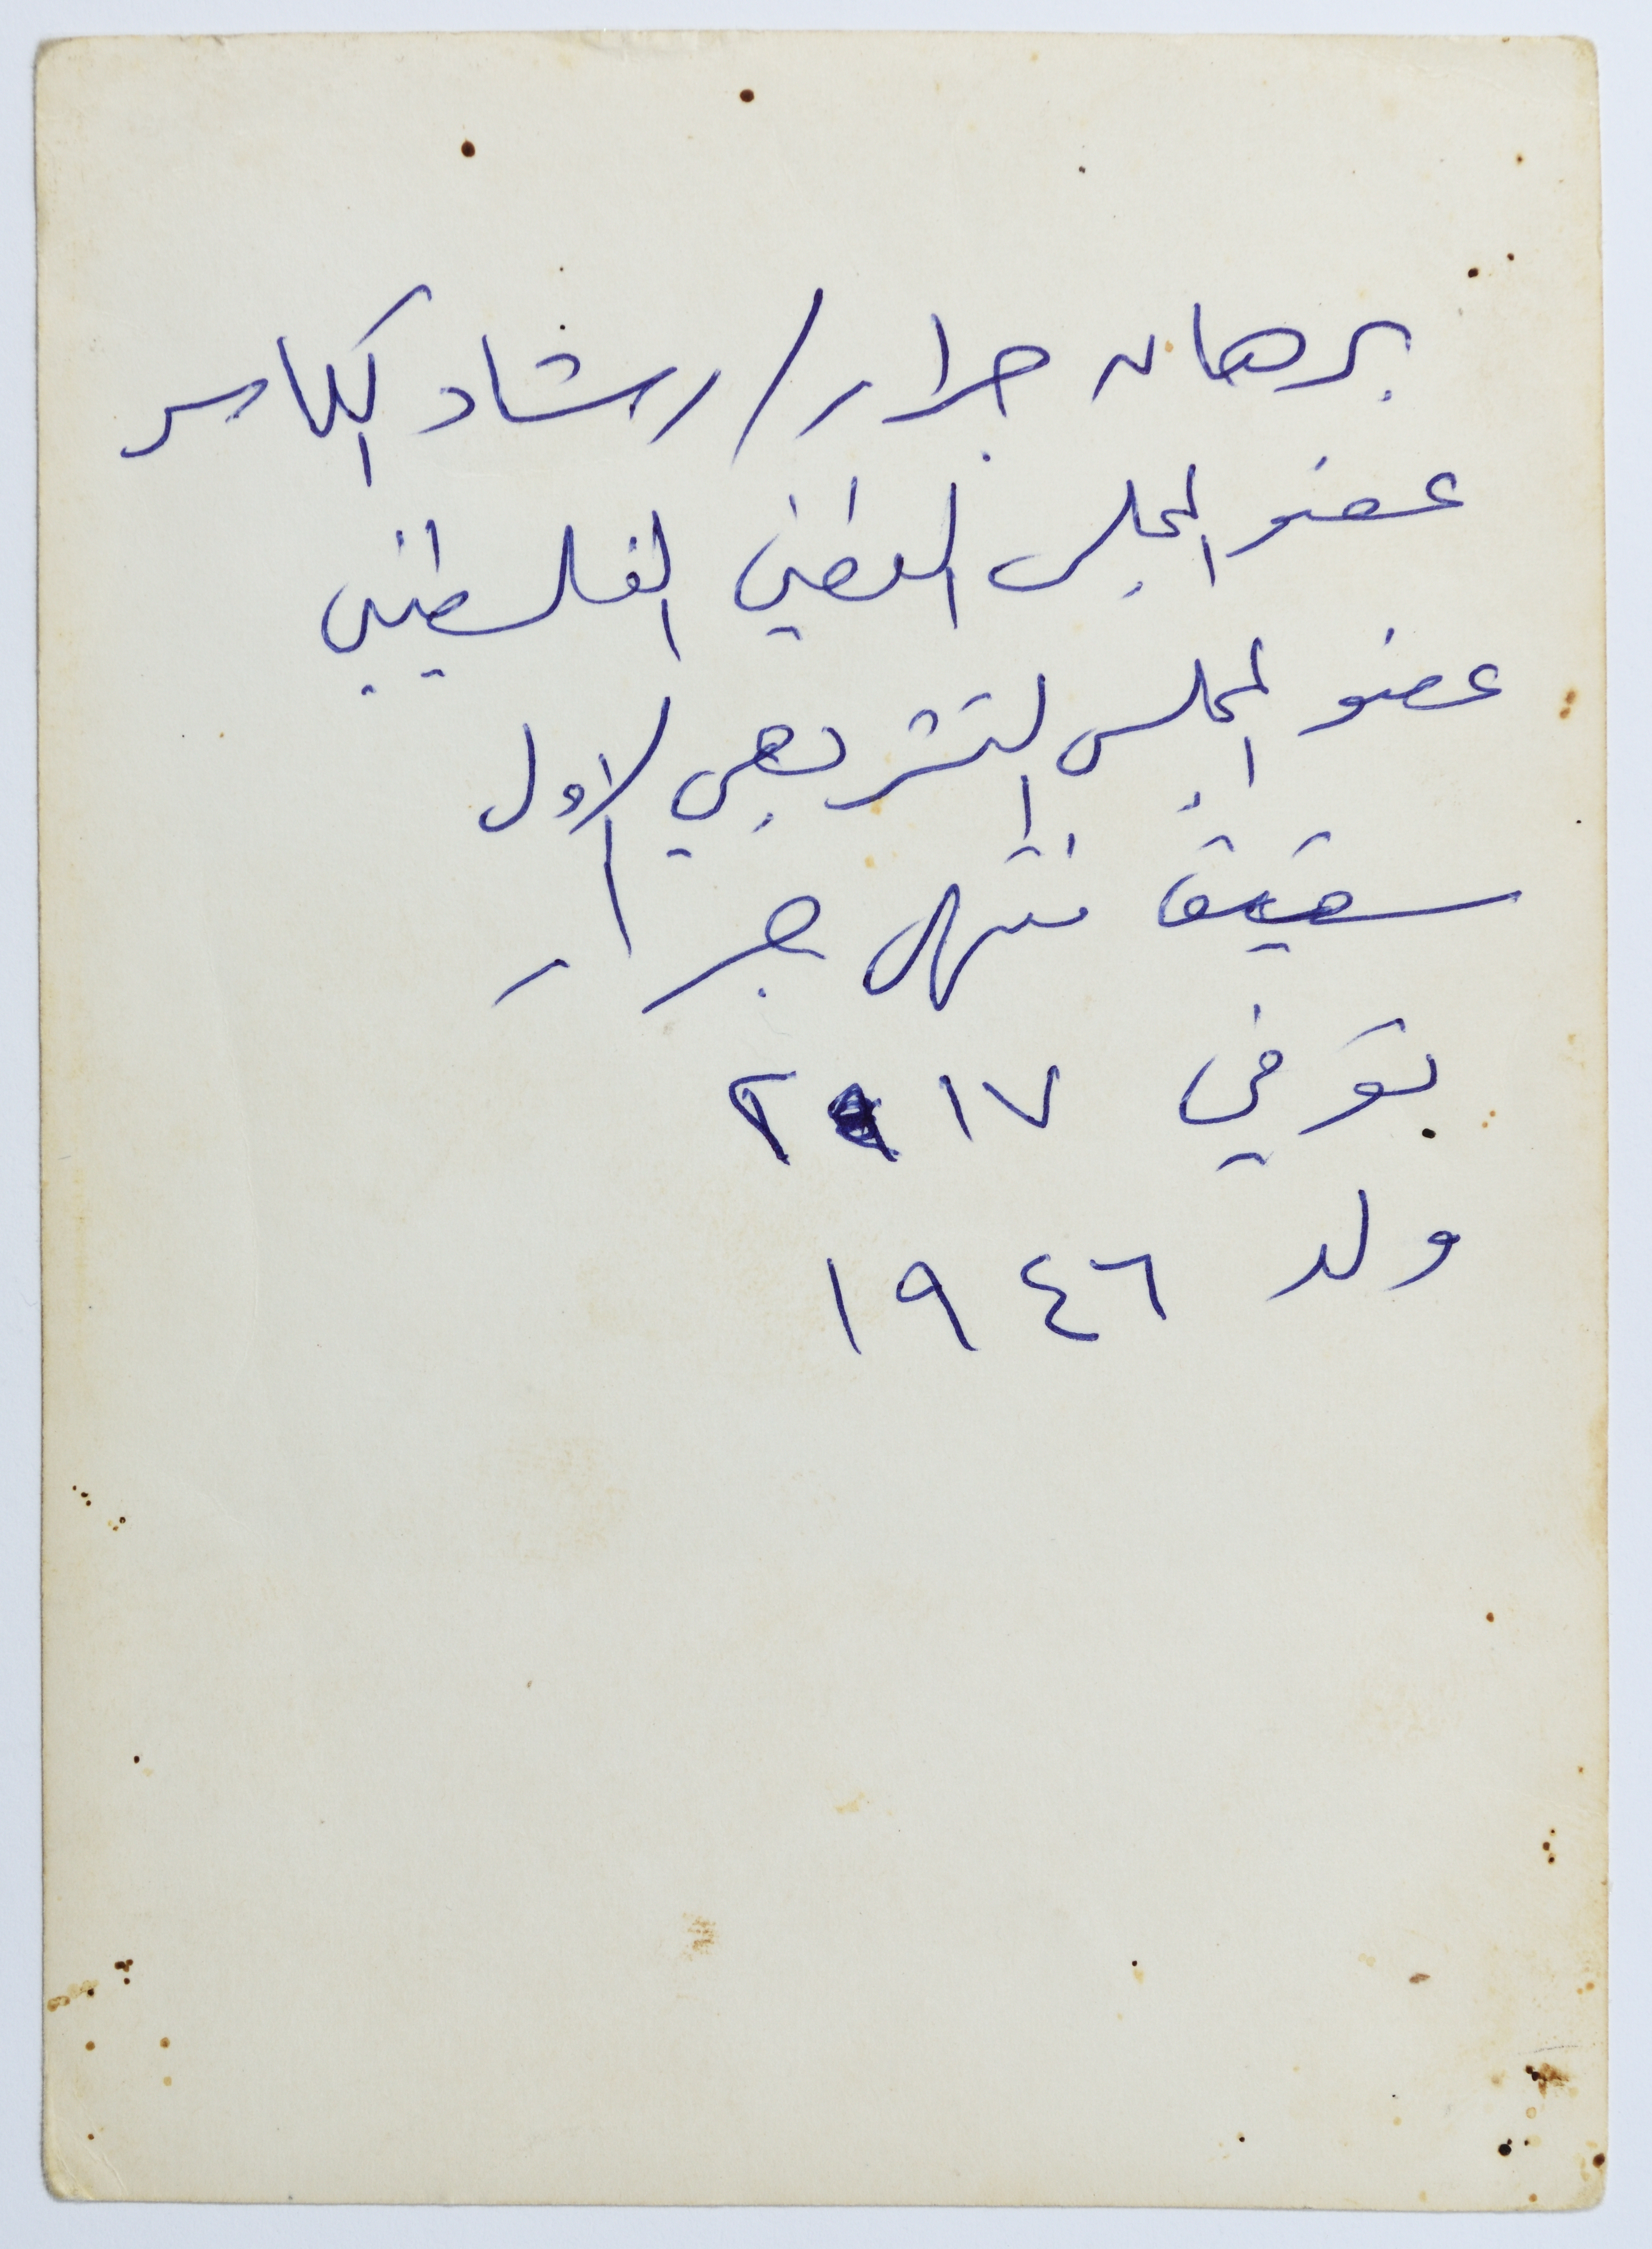 برهان جرار / رشاد الكاسر
عضو المجلس الوطني الفلسطيني
عضو المجلس التشريعي الاول
شقيق منتهى جرار
توفي ٢٠١٧
ولد ١٩٤٦